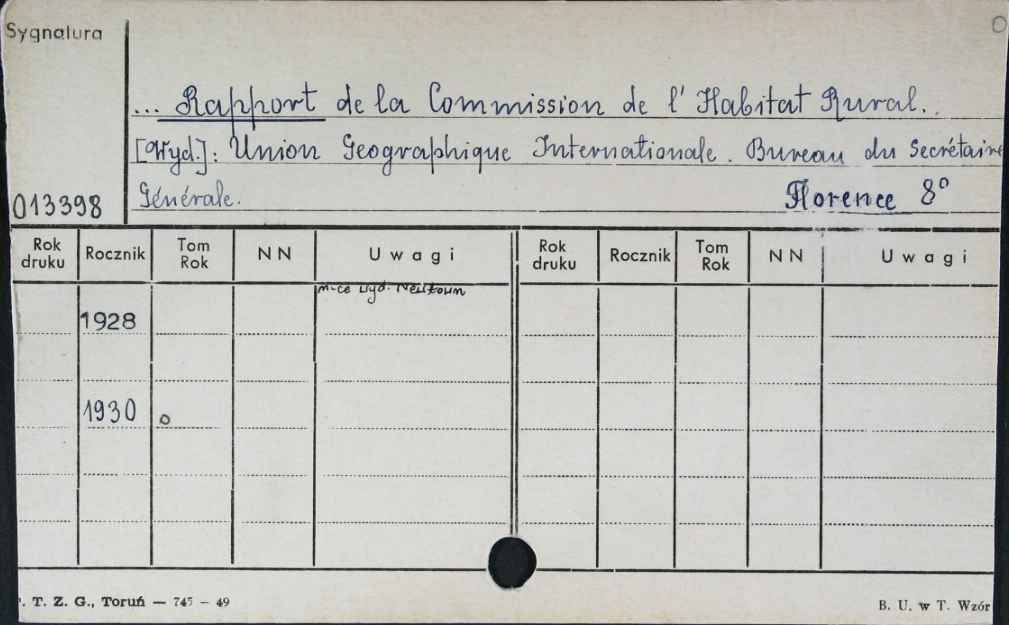 Sygnatura
O
... Rapport de la Commission de l' Habitat Rural.
[Wyd.]: Union Geographique Internationale. Bureau du Secrétaire
Générale. Florence 8°
013398
Rok druku Rocznik Tom Rok NN Uwagi Rok druku Rocznik Tom Rok NN Uwagi
m-ce wyd. Newtown
1928
1930 o
. T. Z. G., Toruń — 745 – 49 B. U. w T. Wzór